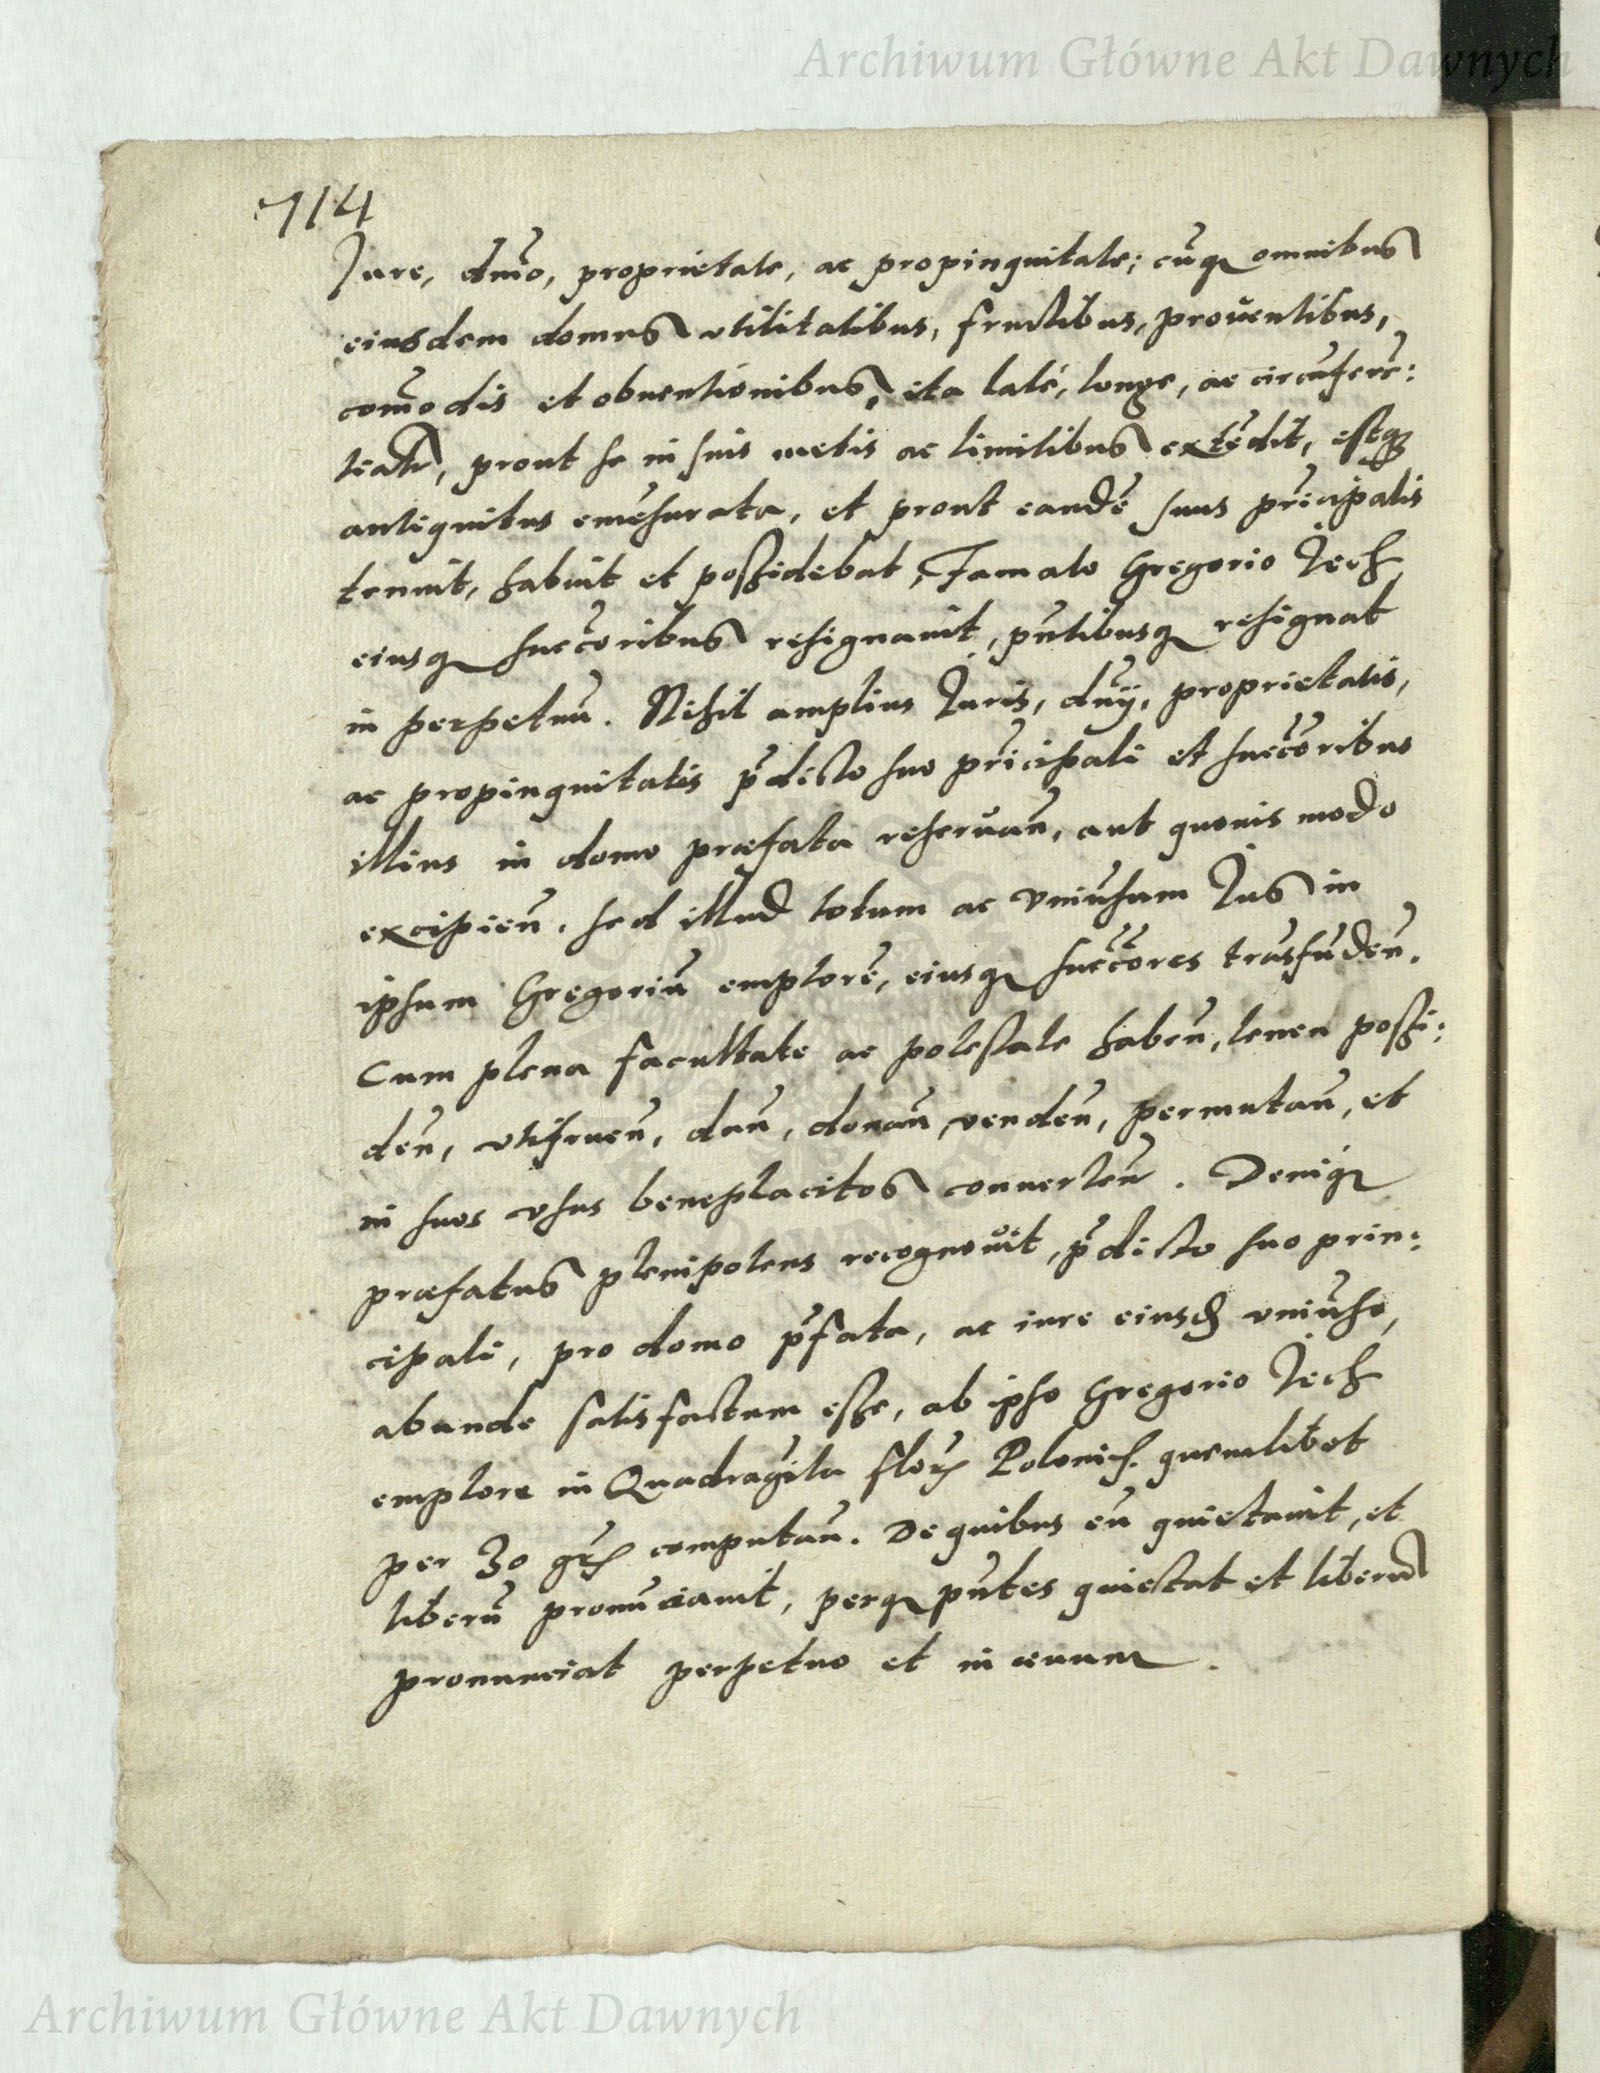 Archiwum Główne Akt Dawnych
714
Jure, dm̃o, proprietate, ac propinquitate; cũq3 omnibus
eiusdem domus vtilitatibus, fructibus, prouentibus,
com̃odis et obuentionibus, ita latè, longe, ac circũferẽ:
tialr, prout se in suis metis ac limitibus extẽdit, estq3
antiquitus emẽsurata, et prout eandẽ suus prĩcipalis
tenuit, habuit et possidebat, Famato Gregorio Jech
eiusq3 succ̃oribus resignauit, pñtibusq3 resignat
in perpetuũ. Nihil amplius Juris, dñij, proprietatis,
ac propinquitatis p̃dicto suo prĩcipali et succ̃oribus
illius in domo præfata reseruañ, aut quouis modo
excipieñ, sed illud totum ac vniũsum Jus in
ipsum Gregoriũ emptorẽ, eiusq3 succ̃ores trãsfũdeñ.
Cum plena facultate ac potestate habeñ, teneñ possi:
deñ, vtifrueñ, dañ, donañ, vendeñ, permutañ, et
in suos vsus beneplacitos conuerteñ. Deniq3
præfatus plenipotens recognouit, p̃dicto suo prin:
cipali, pro domo p̃fata, ac iure eiusd vniũso,
abunde satisfactum esse, ab ipso Gregorio Jech
emptore in Quadragĩta flor Polonis. quemlibet
per 30 gr computañ. De quibus eũ quietauit, et
liberũ pronũciauit, perq3 pñtes quietat et liberũ
pronunciat perpetuo et in æuum.
Archiwum Główne Akt Dawnych